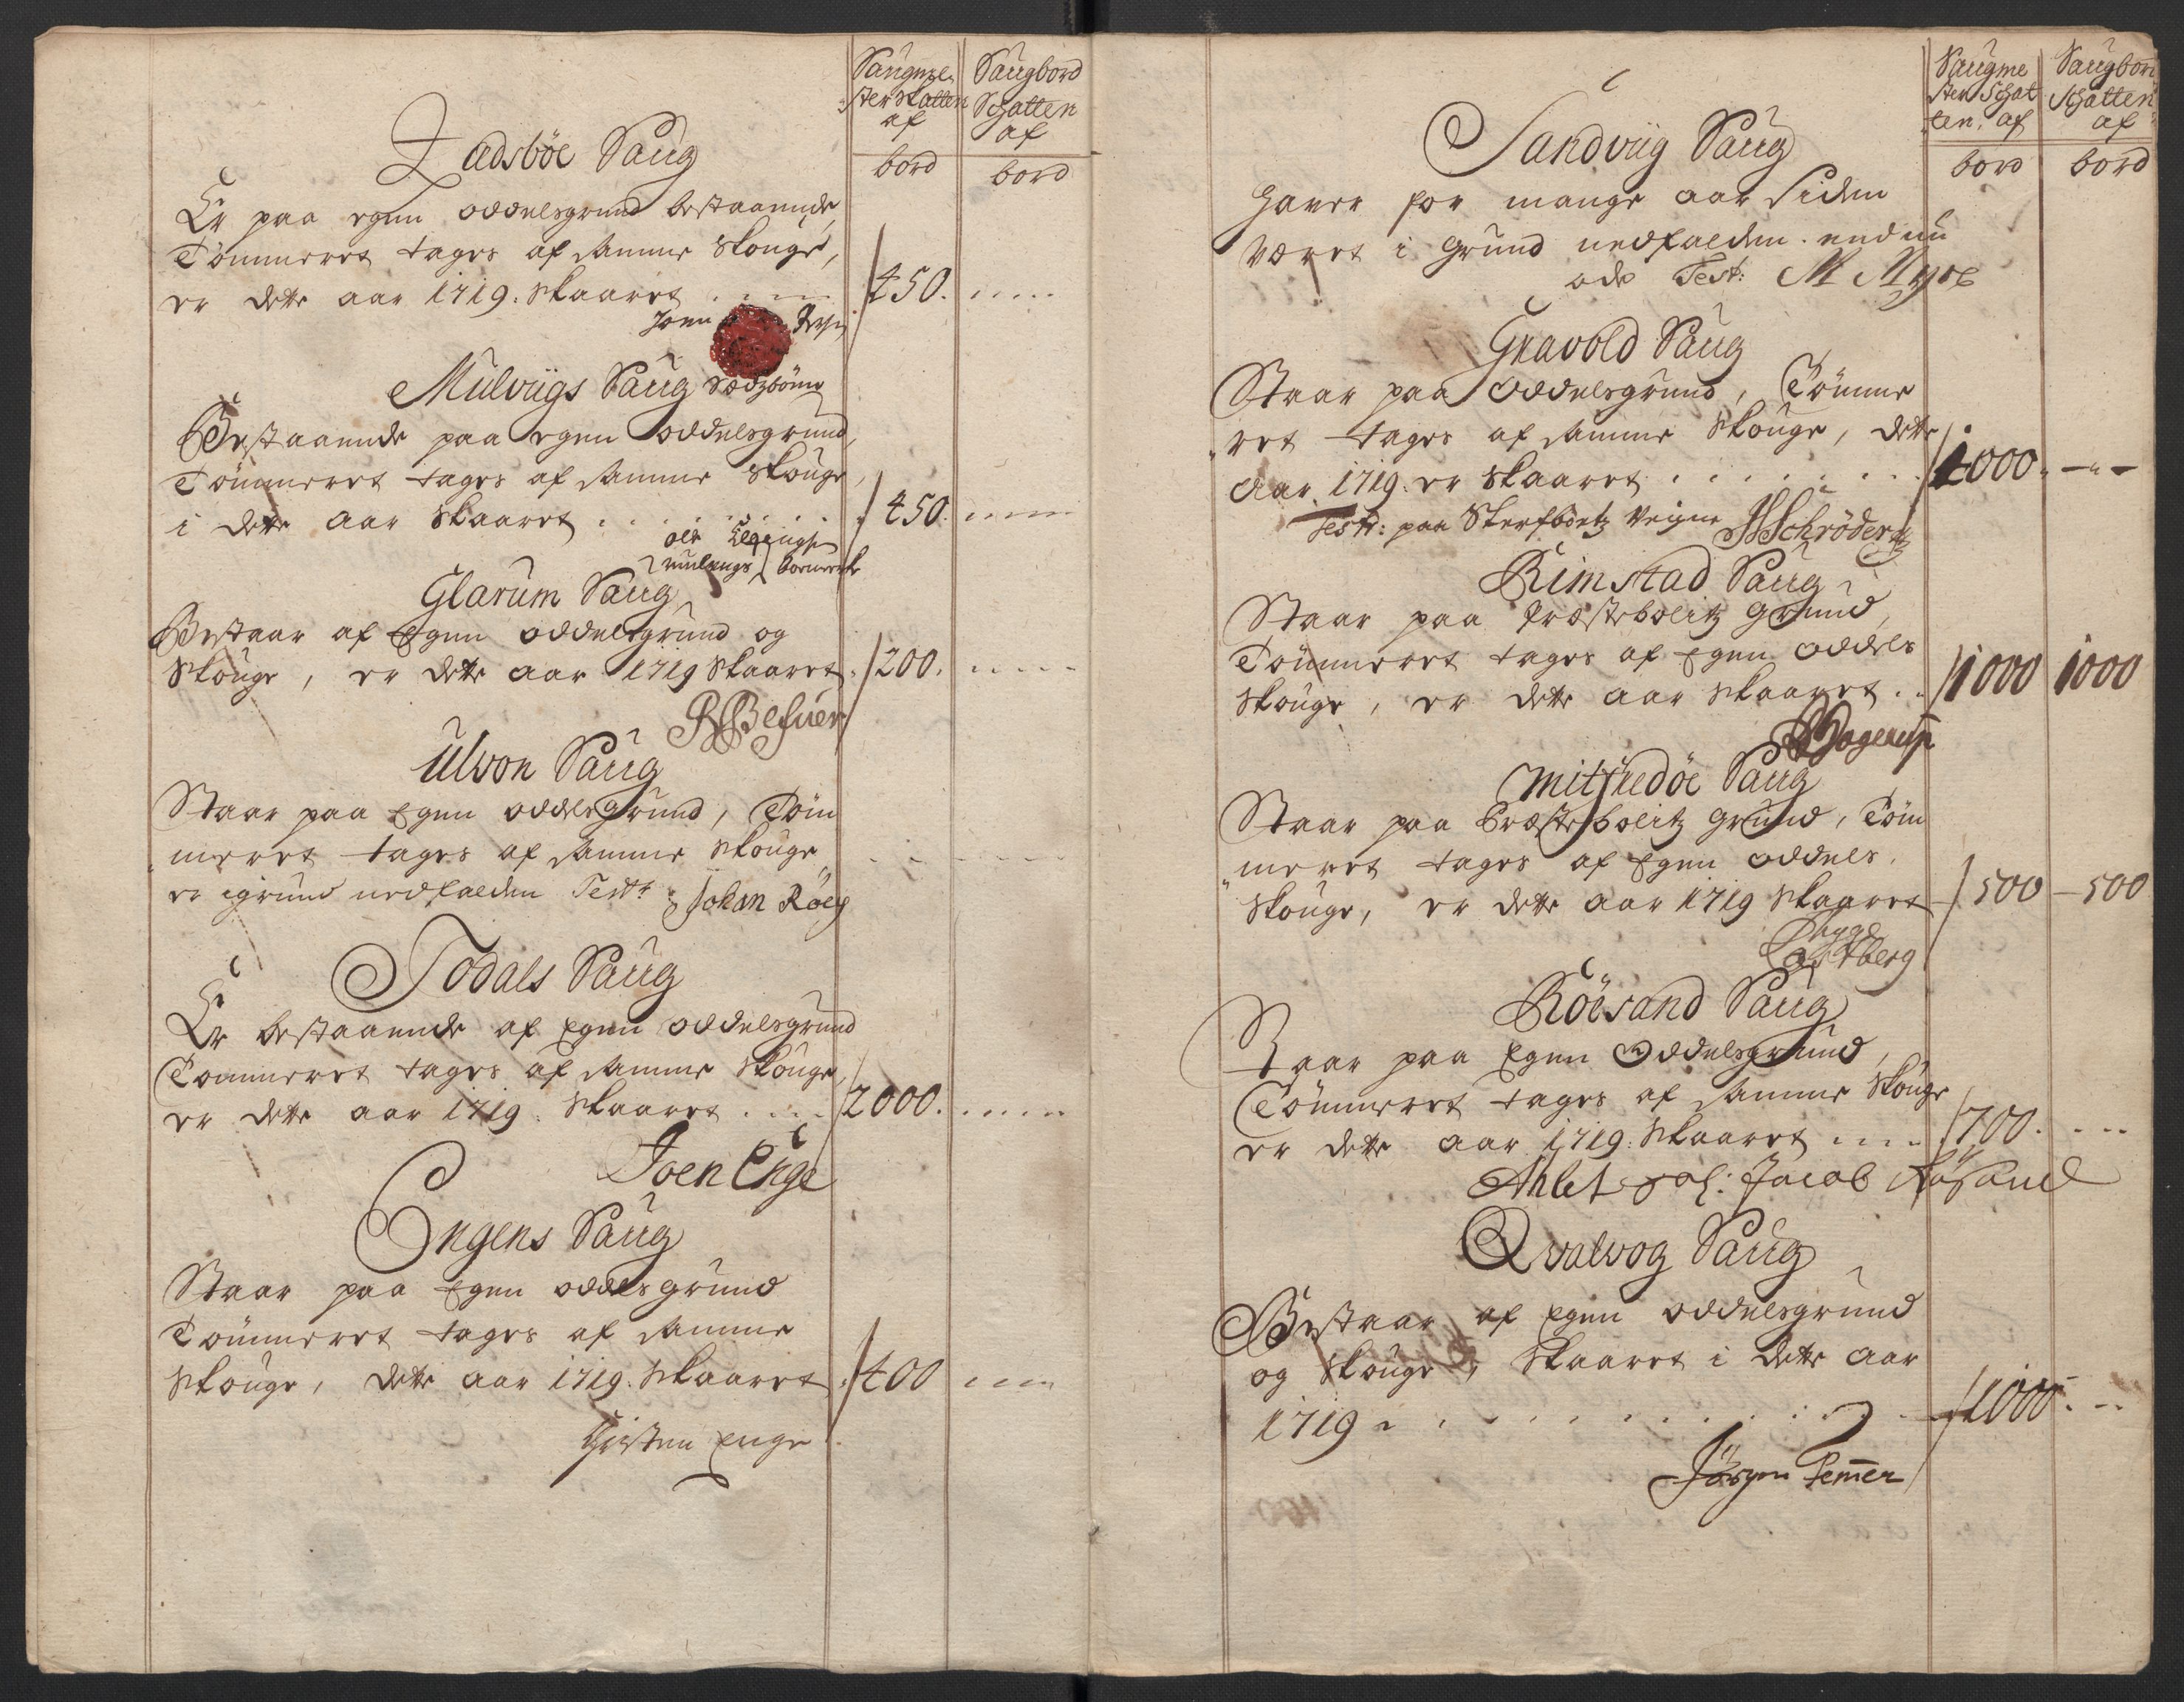 Saugme
ster Skatten
af
bord
Saugbord
Schatten
af
bord
Ladsböe Saug
Er paa egen oddelsgrund bestaaende,
Tömmeret tages af samme Skouge,
er dette aar 1719. Skaaret 450.
Joen
Mulviigs Saug
Bestaaende paa egen oddelsgrund,
Tömmeret tages af samme Skouge,
i dette aar Skaaret 450.
ole
Glarum Saug
Bestaar af Egen oddelsgrund og
Skouge, er dette aar 1719 Skaaret 200.
Ulvon Saug
Staar paa Egen oddelsgrund, Töm
meret tages af samme Skouge
er igrund nedfalden Test: Johan
Todals Saug
Er bestaaende af Egen oddelsgrund
Tömmeret tages af samme Skouge,
er dette aar 1719. Skaaret 2000.
Joen Enge
Engens Saug
Staar paa Egen oddelsgrund
Tömmeret tages af samme
Skouge, dette aar 1719. Skaaret 400
Enge
Saugme
ster Schat
ten. af
bord
Saugbord
Schatten
af
bord
Sandviig Saug
Haver for mange aar Siden
Været i Grund nedfalden. endnu
öde Test:
Gravold Saug
Staar paa Oddelsgrund, Tömme
ret tages af samme Skouge, dette
Aar 1719. er Skaaret 1000.
Test: paa Sterfboets Veigne Schröder
Rimstad Saug
Staar paa Præstebolits grund,
Tömmeret tages af Egen oddels
Skouge, er dette aar Skaaret 1000 1000
Mitfiedöe Saug
Staar paa Præstebolits grund, Töm
meret tages af Egen oddels
Skouge, er dette aar 1719 Skaaret 500 500
Castberg
Röesand Saug
Staar paa Egen Oddelsgrund,
Tömmeret tages af samme Skouge
er dette aar 1719. Skaaret 700.
Ahlet sal: Jacob Rösand
Qvalvog Saug
Bestaar af Egen oddelsgrund
og Skouge, Skaaret i dette aar
1719 1000
Jörgen